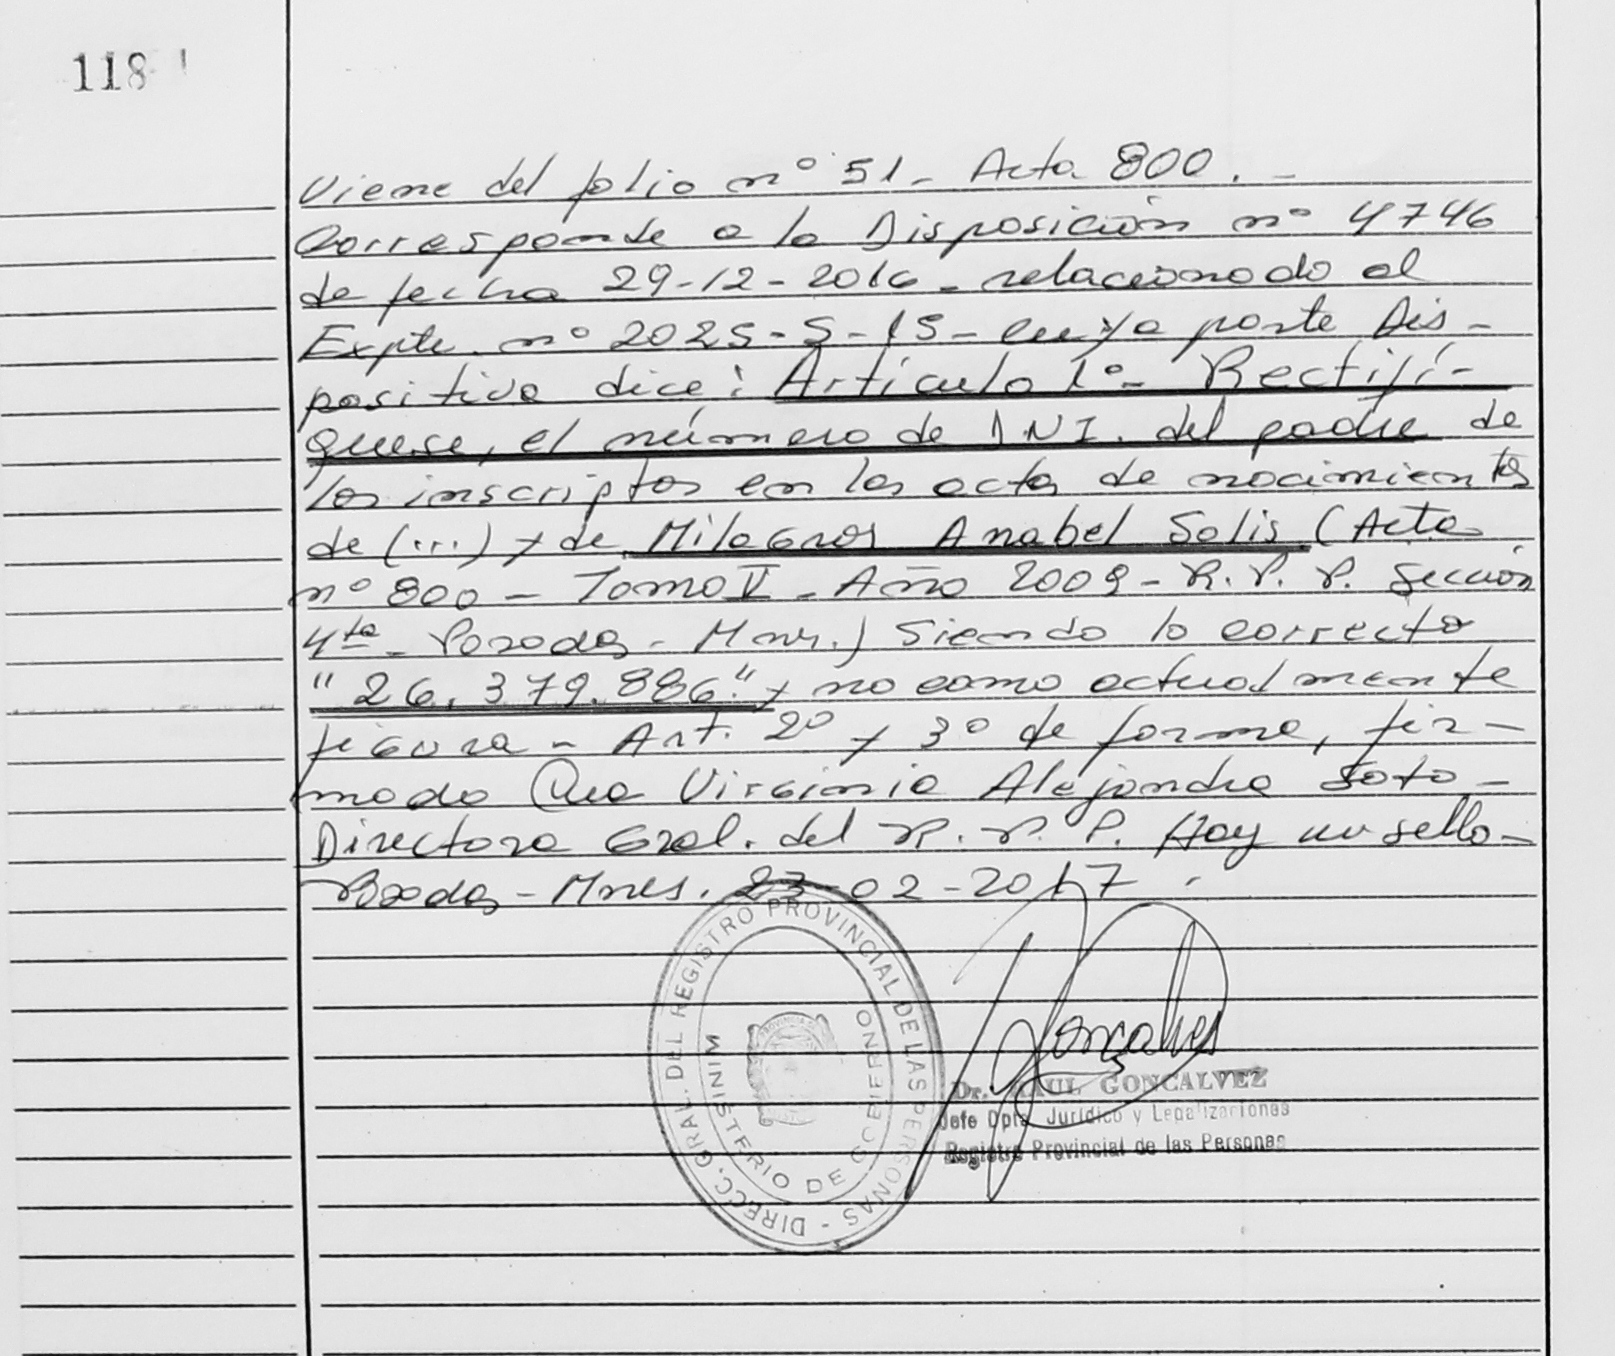 118
Viene del folio nº 51 - Acta 800. -
Corresponde a la Disposición nº 4746
de fecha 29-12-2016 - relacionado al
Expte. nº 2025-S-15 - cuya parte Dis-
positiva dice: Artículo 1º - Rectifí-
quese, el número de DNI. del padre de
los inscriptos en las actas de nacimientos
de (...) y de Milagros Anabel Solis (Acta
nº 800 - Tomo V - Año 2009 - R. P. P. Sección
4ta - Posadas - Mnes.) Siendo lo correcto
"26.379.886" y no como actualmente
figura - Art. 2º y 3º de forma, fir-
mado Virginia Alejandra Soto -
Directora Gral. del R. P. P. Hay un sello -
Posadas - Mnes. 23-02-2017.
DIRECC. GRAL. DEL REGISTRO PROVINCIAL DE LAS PERSONAS -
MINISTERIO DE GOBIERNO
PROVINCIA
Goncalves
Dr. RAUL GONCALVEZ
Jefe Dpto. Jurídico y Legalizaciones
Registro Provincial de las Personas